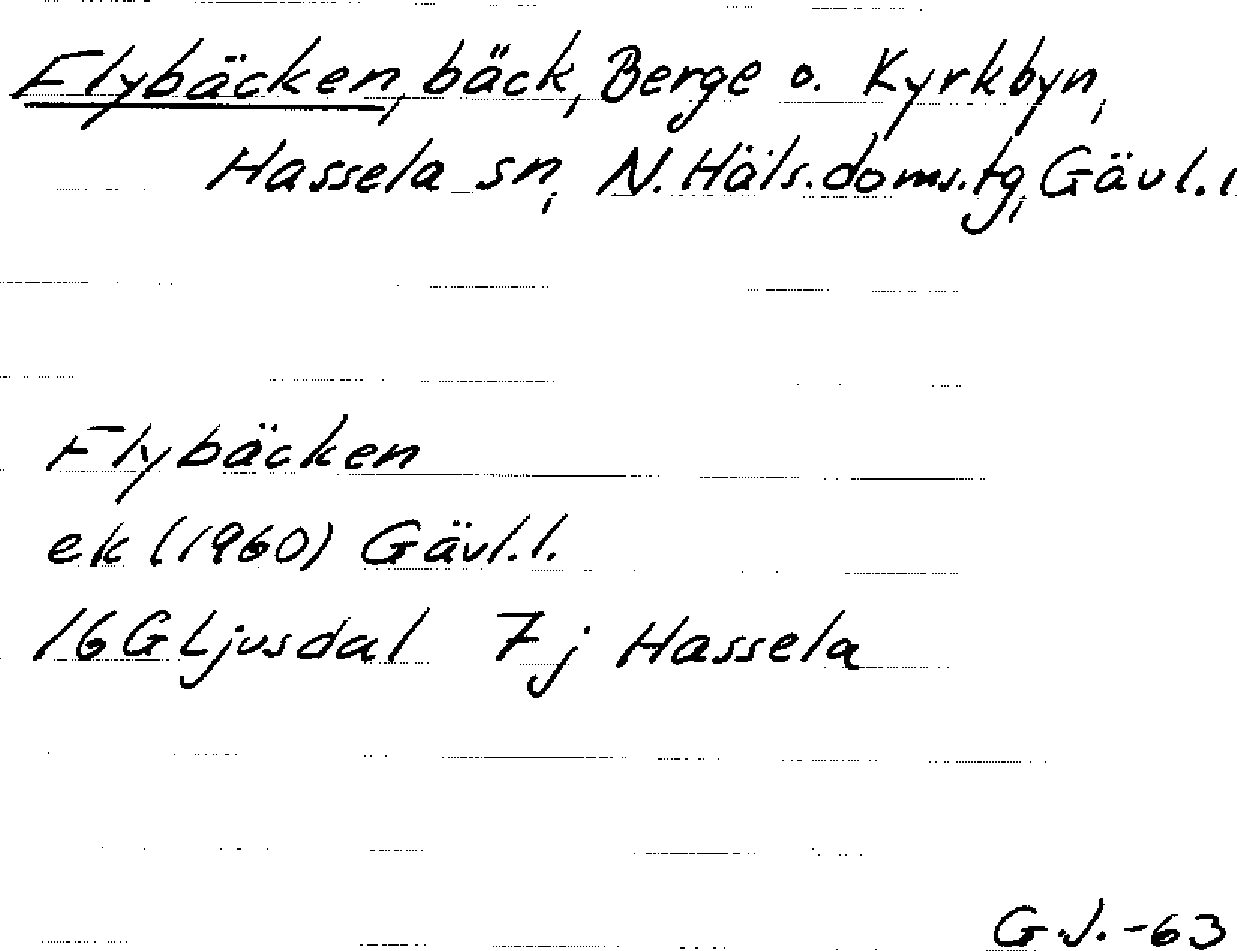 Flybäcken, bäck, Berge o. Kyrkbyn,
Hassela sn, N. Häls.doms.tg, Gävl.l
Flybäcken
ek (1960) Gävl.l.
16G Ljusdal 7j Hassela
G.J. -63